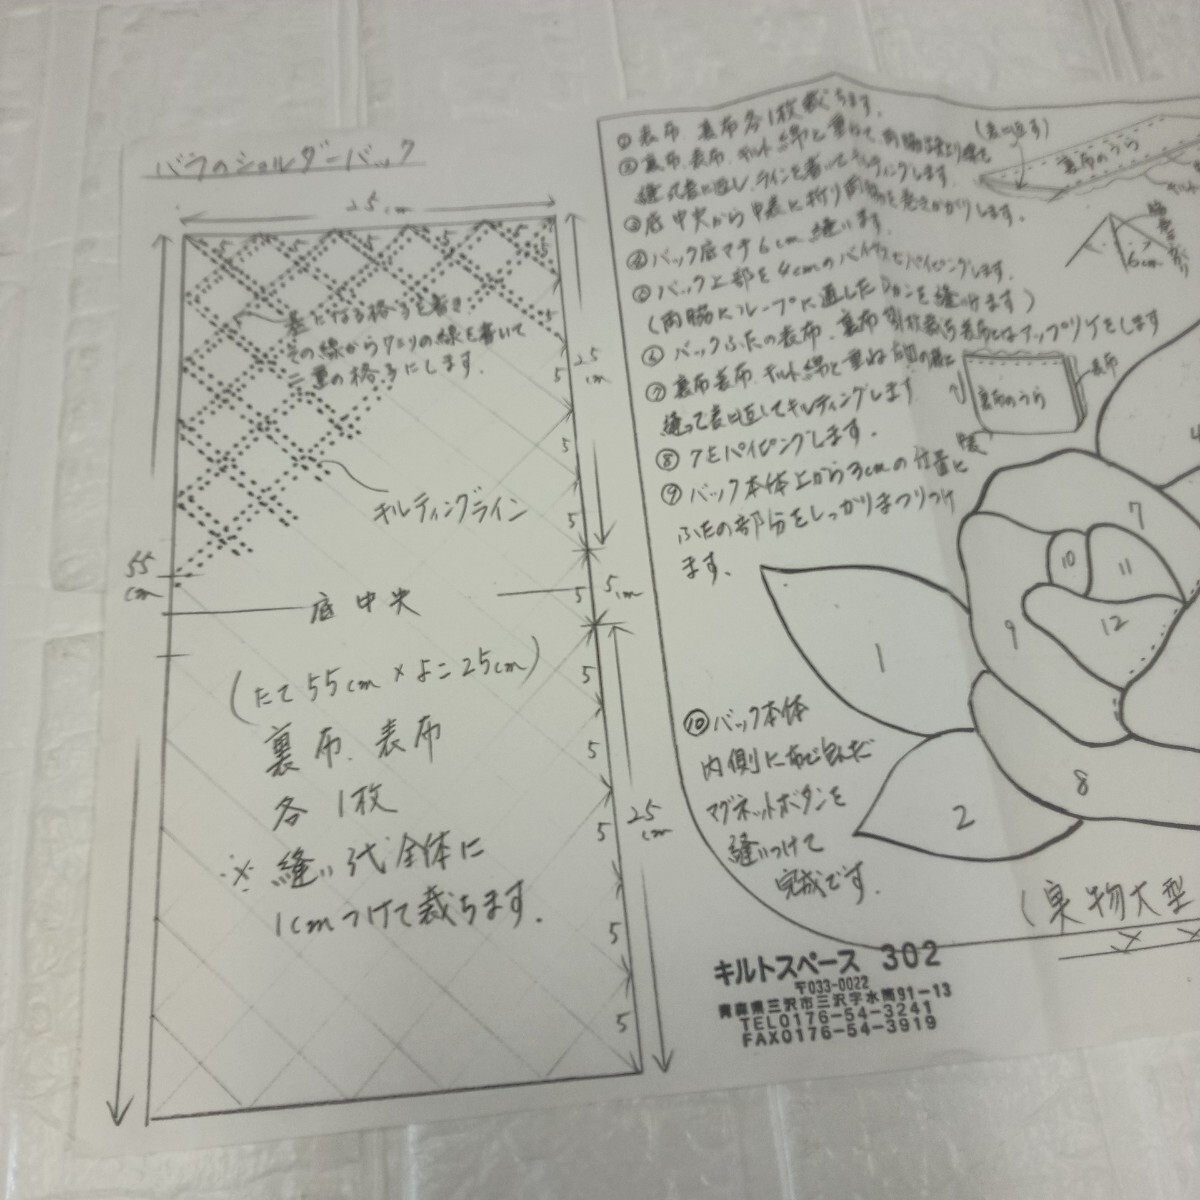 バラのショルダーバック
25cm
基となる格子を書き
その線から7ミリの線を書いて
二重の格子にします.
キルティングライン
25cm
55cm
底中央
5cm
(たて55cm×よこ25cm)
裏布、表布
各1枚
※縫い代全体に
1cmつけて裁ちます.
25cm
5
5
5
5
5
5
5
5
5
① 表布 裏布各1枚裁ちます.
② 裏布、表布、キルト綿と重ねて、両脇
縫って表に返し、ラインを書いてキルティングします.
③ 底中央から中表に折り両脇を巻きかがりします.
④ バック底マチ6cm縫います.
⑤ バック上部を4cmのバイヤスでパイピングします.
(両脇にループに通したDカンを縫つけます)
⑥ バックふたの表布、裏布 表布にはアップリケをします
⑦ 裏布表布、キルト綿と重ね
縫って表に返してキルティングします
⑧ ⑦をパイピングします.
⑨ バック本体上から3cmの位置に
ふたの部分をしっかりまつりつけ
ます.
⑩ バック本体
内側に布で包んだ
マグネットボタンを
縫いつけて
完成です.
(表に返す)
裏布のうら
6cm
表布
裏布のうら
1
2
7
8
9
10
11
12
(実物大型
キルトスペース 302
〒033-0022
青森県三沢市三沢字水筒91-13
TEL0176-54-3241
FAX0176-54-3919